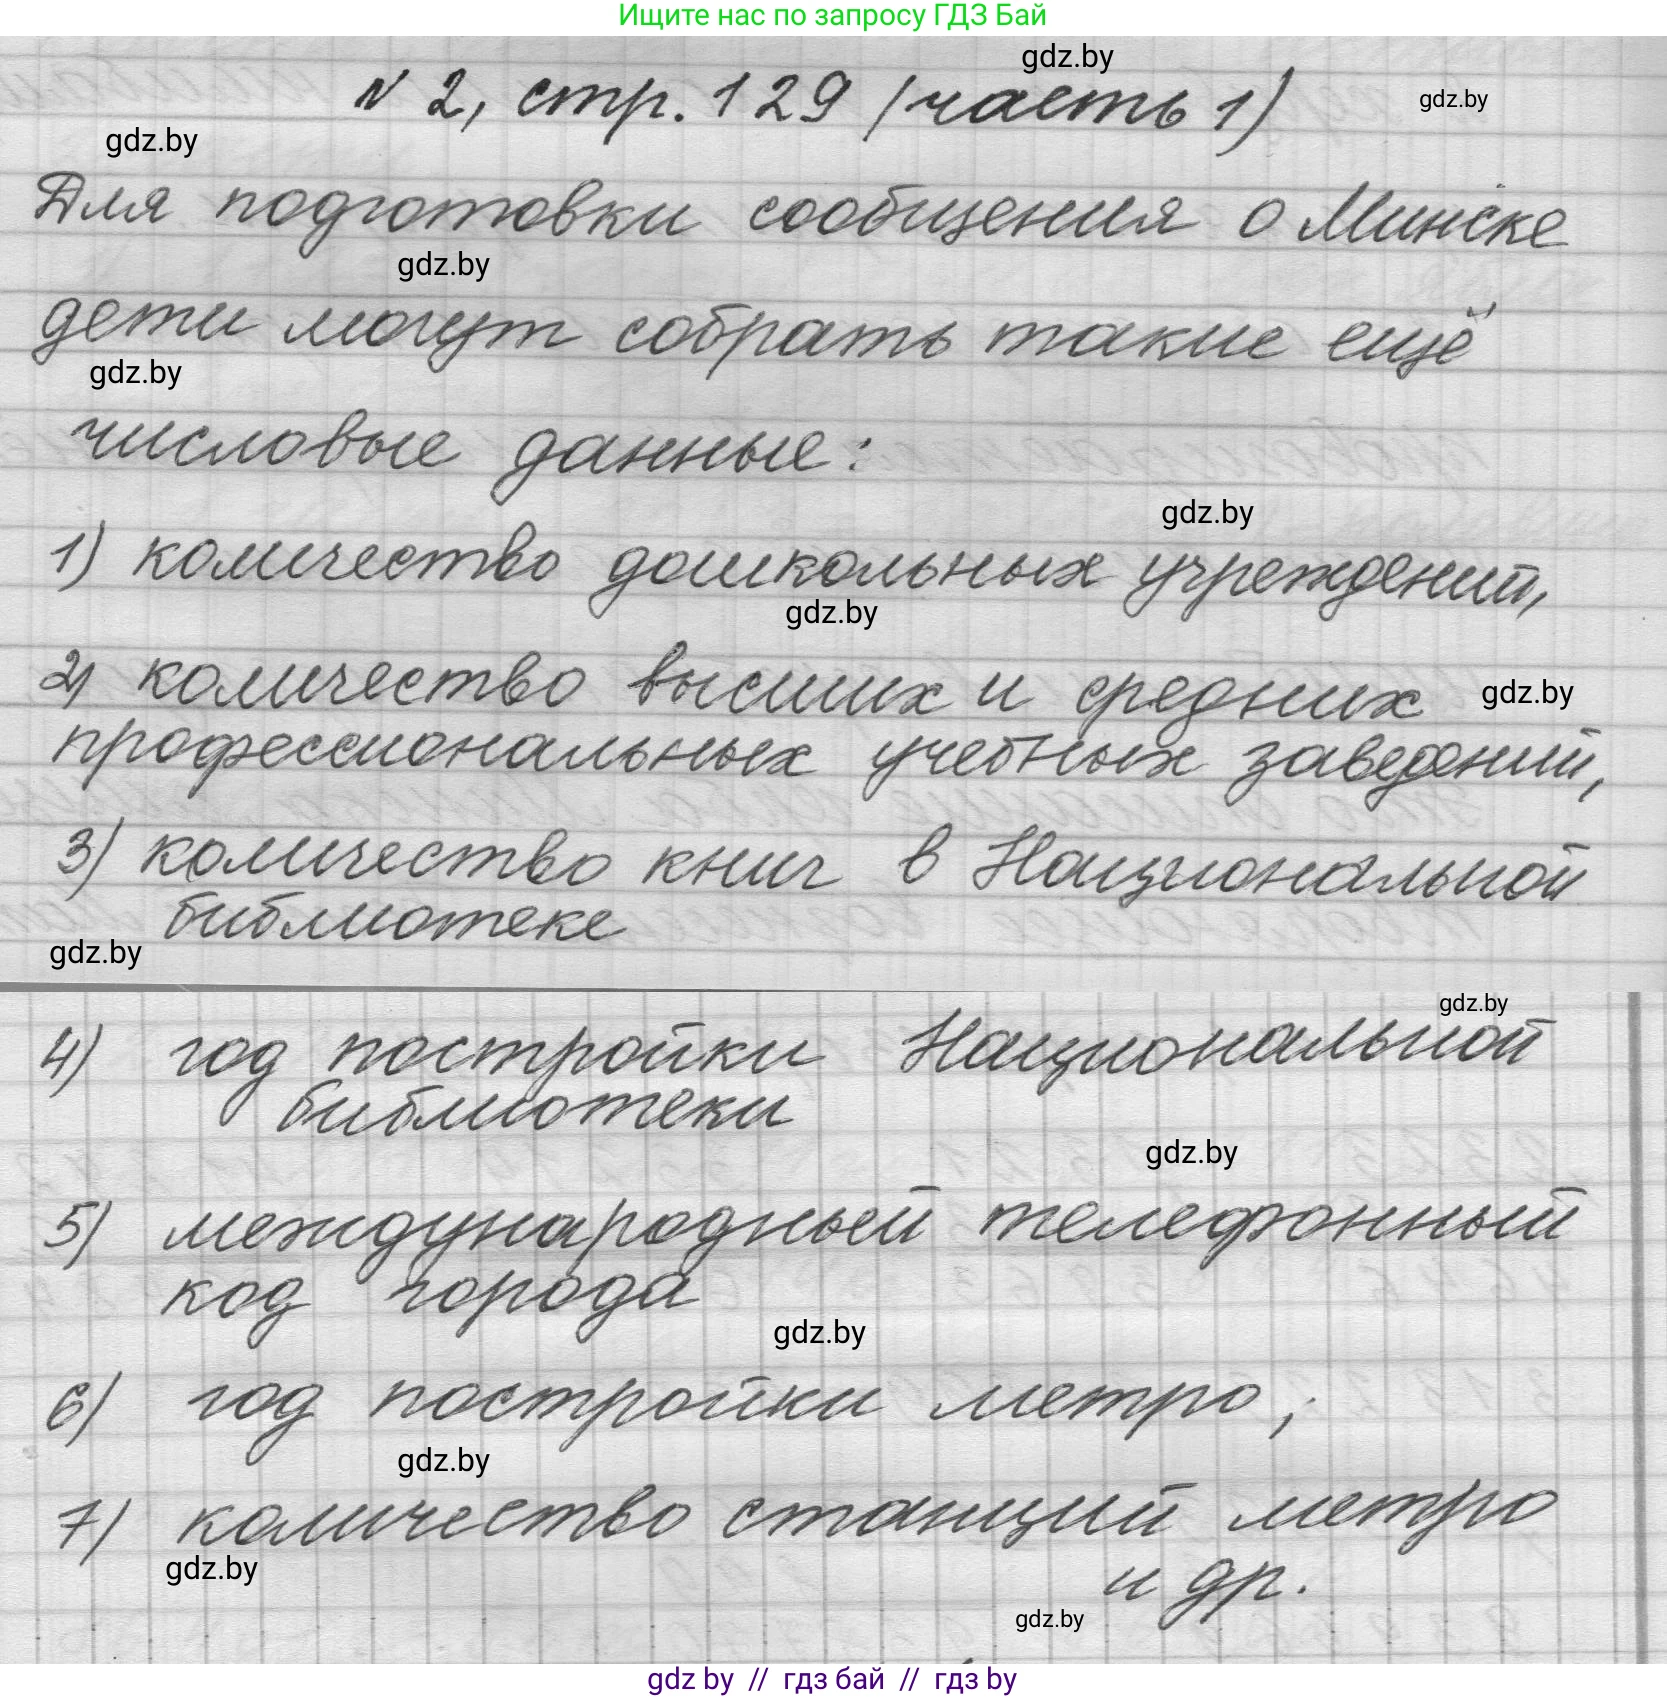 Ищите нас по запросу ГДЗ Бай
gdz.by
№ 2, стр. 129 (часть 1)
gdz.by
gdz.by
Для подготовки сообщения о Минске
gdz.by
дети могут собрать такие ещё
gdz.by
числовые данные:
gdz.by
1) количество дошкольных учреждений,
gdz.by
2) количество высших и средних
gdz.by
профессиональных учебных заведений,
3) количество книг в Национальной
библиотеке
gdz.by
gdz.by
4) год постройки Национальной
библиотеки
gdz.by
5) международный телефонный
код города
gdz.by
6) год постройки метро;
gdz.by
7) количество станций метро
gdz.by
и др.
gdz.by
gdz by // гдз бай // гдз by